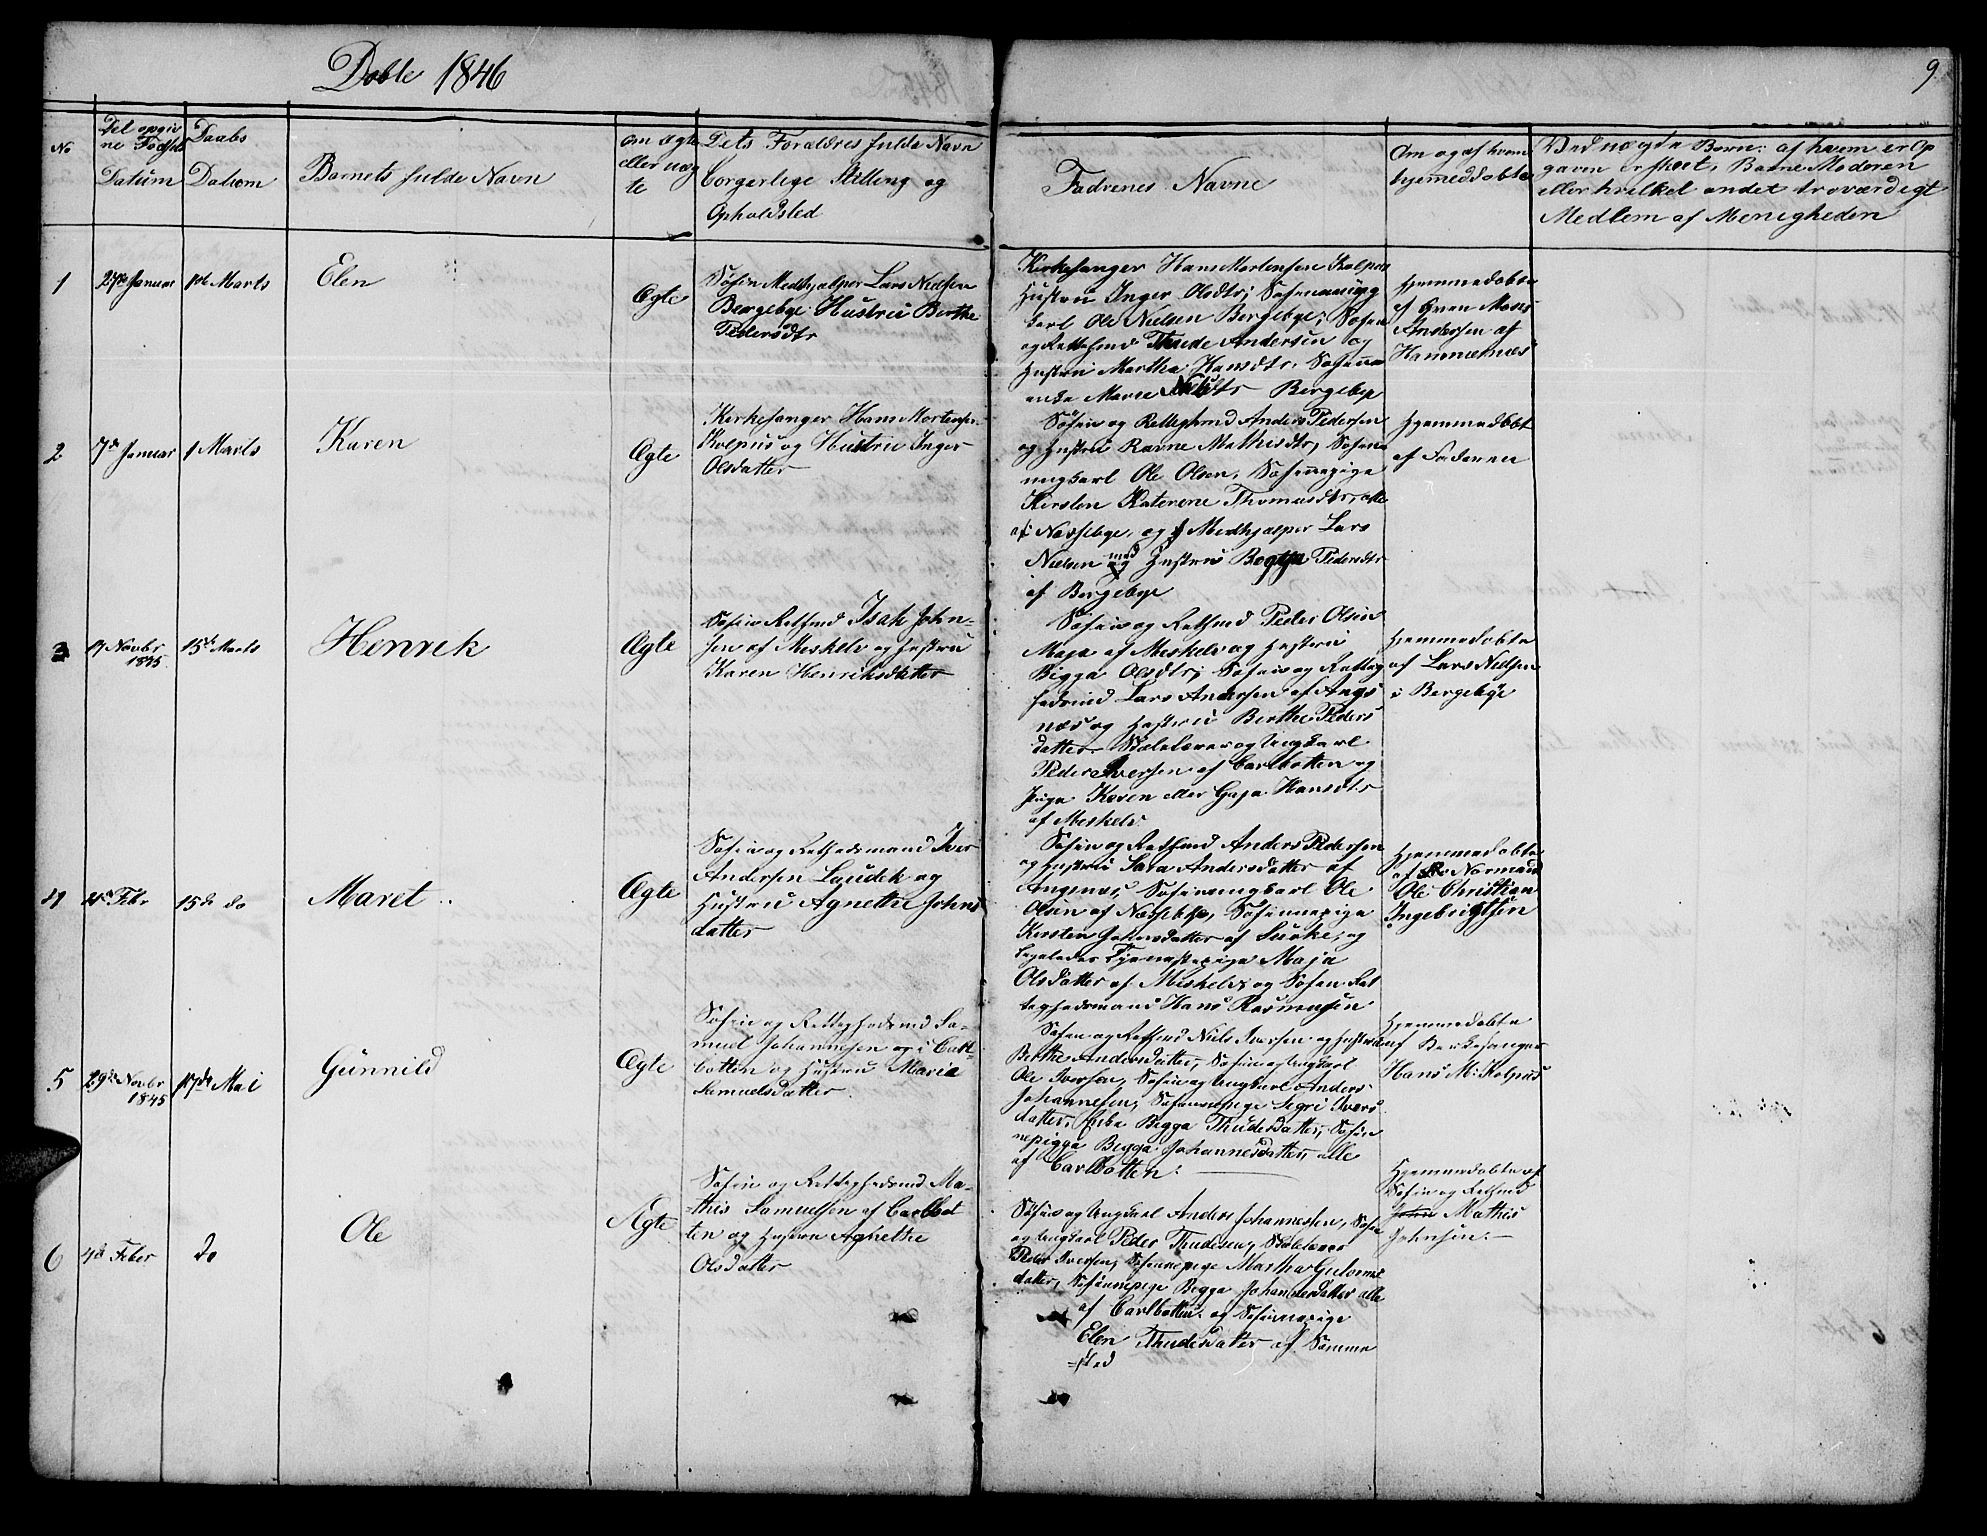 Døbte 1846
9.
No
Det opgiv
ne Fødsels
Datum
Daabs
Datum
Barnets fulde Navn
Om ægte
eller uæg
te
Dets Forældres fulde Navn
borgerlige Stilling og
Opholdsted
Fadrenes Navne
Om og af hvem
hjemmedøbte
Ved uægte Børn: af hvem er Op
gaven er skeet, Barne Moderen
eller hvilket andet troværdigt
Medlem af Menigheden
1
1ste Marts
Elen
Ægte
Søfin Medhjælper Lars Nielsen
Bergebye Hustrue Berthe
Pedersdtr
Kirkesanger Hans Mortensen Kolpus
Hustru Inger Olsdtr; Søfinn ung
karl Ole Nielsen Bergebye; Søfin
og Rettsmd Thude Andersen og
Hustru Martha Hansdtr, Søfinn
enke Marie Nilsdtr Bergebye
Hjemmedøbte
af Mons
Andersen af
Hammernæs
2
7de Januar
1 Marts
Karen
Ægte
Kirkesanger Hans Mortensen
Kolpus og Hustrue Inger
Olsdatter
Søfin og Rettighmd Anders Pedersen
og Hustru Ravne Mathisdtr, Søfin
ungkarl Ole Olsen, Søfinnepige
Kirsten Katerene Thomasdtr, alle
af Næssebye, og Medhjælper Lars
Nielsen med Hustru Pedersdtr
af Bergebye
Hjemmedøbt
af Faderen
3
19 Novbr
1845
15de Marts
Henrik
Ægte
Søfin Retsmd Isak John-
sen af Meskelv og Hustru
Karen Henriksdatter
Søfin og Retsmd Peder Olsen
Maja af Meskelv og Hustru
Bigga Olsdtr; Søfin og Rettig
hedsmd Lars Andersen af Angs
næs og Hustru Berthe Peders
datter Skolelærer og Ungkarl
Peder Iversen af Carlbotten og
Pige Karen eller Gaja Hansdtr
af Meskelv
Hjemmedøbte
af Lars Nielsen
i Bergebye
4
Febr
15de do
Maret
Ægte
Søfin og Retthedsmand Iver
Andersen og
Hustru Agnethe Johns
datter
Søfin og Retsmd Anders Pedersen
og Hustru Sara Andersdatter af
Angsnæs, Søfin ungkarl Ole
Olsen af Næssebye, Søfinnepige
Kirsten Johansdatter af; og
Ligeledes Tjenestepige Maja
Olsdatter af Meskelv og Søfin Ret
tighedsmand Hans Rasmussen
Hjemmedøbte
af Normand
Ole Christian
Ingebrigtsen
5
29de Novbr
1845
17de Mai
Gunnild
Ægte
Søfin og Rettighedsmd Sa-
muel Johannesen og i Carl-
botten og Hustru Maria
Samuelsdatter.
Søfin og Retsmd Niels Iversen og Hustru
Berthe Andersdatter, Søfin og Ungkarl
Ole Iversen, Søfin og Ungkarl Anders
Johannesen, Søfinnepige Segri Ivers
datter, Enke Begga Thudesdatter, Søfin
nepigga Begga Johannesdatter, alle
af Carlbotten.
Hjemmedøbte
af Kirkesanger
Hans M: Kolpus
6
4de Feber
do
Ole
Ægte
Søfin og Rettighedsmd Ma-
this Samuelsen af Carlbot
ten og Hustru Agnethe
Olsdatter
Søfin og Ungkarl Anders Johannessen, Søfin
og Ungkarl Peder Thudesen, Skolelærer
Peder Iversen, Søfinnepige Martha
datter, Søfinnepige Begga Johannesdatter alle
af Carlbotten og Søfinnepige
Elen Thudesdatter af Somme
sted
Hjemmedøbte af
Søfin og Retsmd
John Mathis
Johnsen.